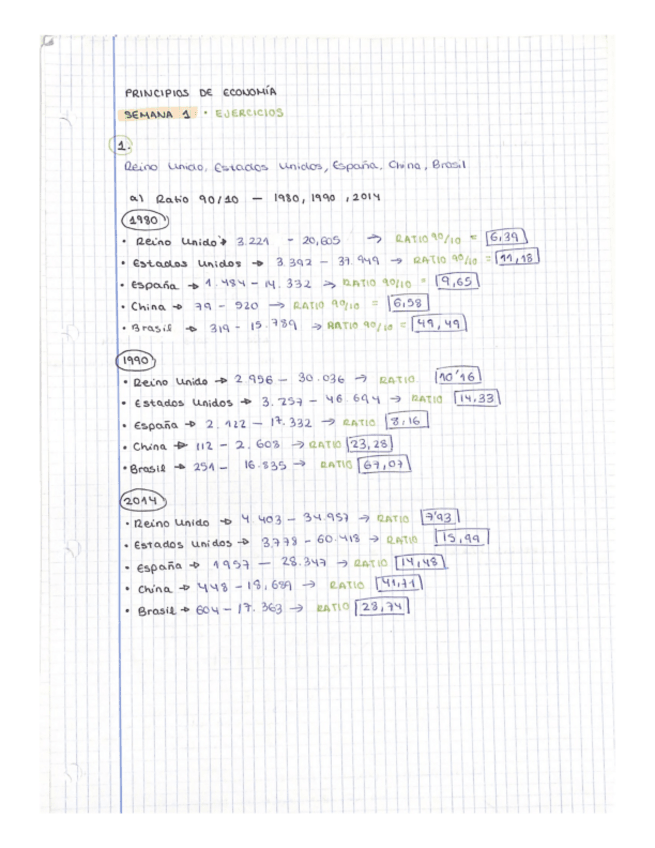 PRINCIPIOS DE ECONOMÍA
SEMANA 1 · EJERCICIOS
1.
Reino Unido, Estados Unidos, España, China, Brasil
a) Ratio 90/10 — 1980, 1990, 2014
1980
• Reino Unido → 3.221 - 20,605 → RATIO 90/10 = 6,39
• Estados Unidos → 3.392 - 37.949 → RATIO 90/10 = 11,18
• España → 1.484 - 14.332 → RATIO 90/10 = 9,65
• China → 79 - 520 → RATIO 90/10 = 6,58
• Brasil → 319 - 15.789 → RATIO 90/10 = 49,49
1990
• Reino Unido → 2 956 - 30.036 → RATIO 10'16
• Estados Unidos → 3.257 - 46.694 → RATIO 14,33
• España → 2.122 - 17.332 → RATIO 8,16
• China → 112 - 2.608 → RATIO 23,28
• Brasil → 251 - 16.835 → RATIO 67,07
2014
• Reino Unido → 4.403 - 34.957 → RATIO 7'93
• Estados Unidos → 3.778 - 60.418 → RATIO 15,99
• España → 1957 - 28.347 → RATIO 14,48
• China → 448 - 18,689 → RATIO 41,71
• Brasil → 604 - 17.363 → RATIO 28,74